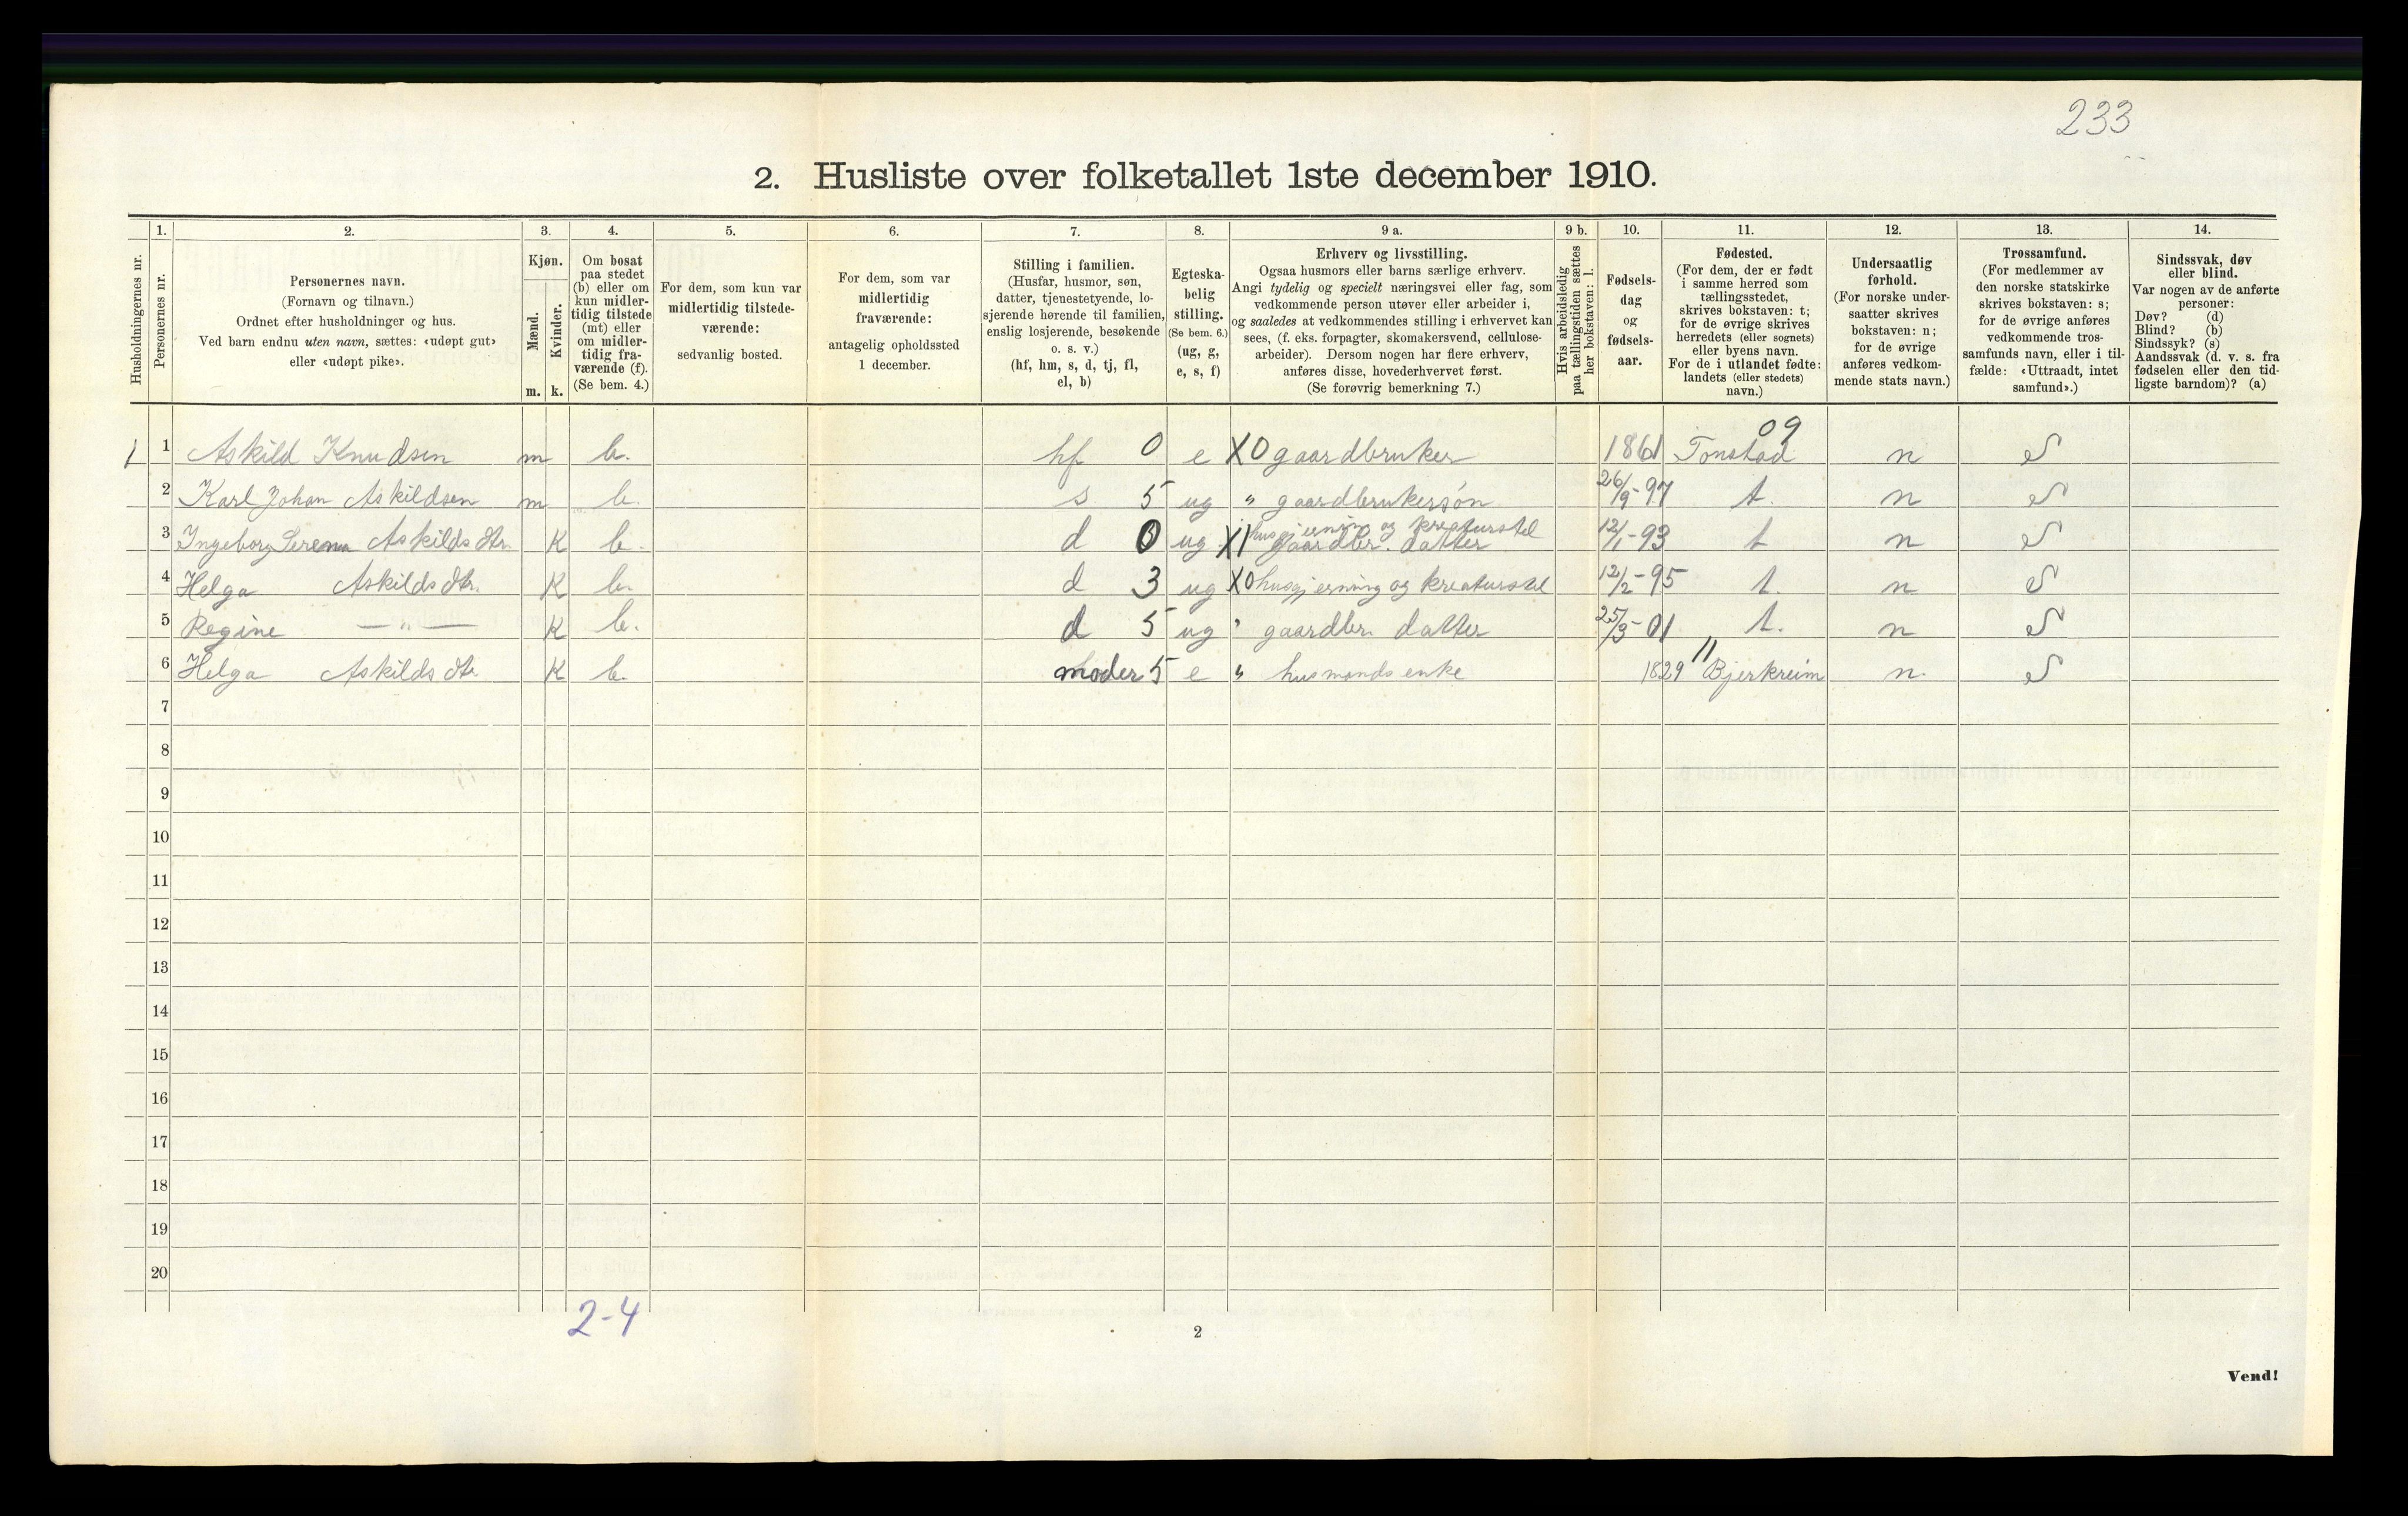 233
2. Husliste over folketallet 1ste december 1910.
Husholdningernes nr.
1.
Personernes nr.
2.
Personernes navn.
(Fornavn og tilnavn.)
Ordnet efter husholdninger og hus.
Ved barn endnu uten navn, sættes: «udøpt gut»
eller «udøpt pike».
3.
Kjøn.
Mænd.
Kvinder.
m. k.
4.
Om bosat
paa stedet
(b) eller om
kun midler-
tidig tilstede
(mt) eller
om midler-
tidig fra-
værende (f).
(Se bem. 4.)
5.
For dem, som kun var
midlertidig tilstede-
værende:
sedvanlig bosted.
6.
For dem, som var
midlertidig
fraværende:
antagelig opholdssted
1 december.
7.
Stilling i familien.
(Husfar, husmor, søn,
datter, tjenestetyende, lo-
sjerende hørende til familien,
enslig losjerende, besøkende
o. s. v.)
(hf, hm, s, d, tj, fl,
el, b)
8.
Egteska-
belig
stilling.
(Se bem. 6.)
(ug, g,
e, s, f)
9 a.
Erhverv og livsstilling.
Ogsaa husmors eller barns særlige erhverv.
Angi tydelig og specielt næringsvei eller fag, som
vedkommende person utøver eller arbeider i,
og saaledes at vedkommendes stilling i erhvervet kan
sees, (f. eks. forpagter, skomakersvend, cellulose-
arbeider). Dersom nogen har flere erhverv,
anføres disse, hovederhvervet først.
(Se forøvrig bemerkning 7.)
9 b.
Hvis arbeidsledig
paa tællingstiden sættes
her bokstaven: l.
10.
Fødsels-
dag
og
fødsels-
aar.
11.
Fødested.
(For dem, der er født
i samme herred som
tællingsstedet,
skrives bokstaven: t;
for de øvrige skrives
herredets (eller sognets)
eller byens navn.
For de i utlandet fødte:
landets (eller stedets)
navn.)
12.
Undersaatlig
forhold.
(For norske under-
saatter skrives
bokstaven: n;
for de øvrige
anføres vedkom-
mende stats navn.)
13.
Trossamfund.
(For medlemmer av
den norske statskirke
skrives bokstaven: s;
for de øvrige anføres
vedkommende tros-
samfunds navn, eller i til-
fælde: «Uttraadt, intet
samfund».)
14.
Sindssvak, døv
eller blind.
Var nogen av de anførte
personer:
Døv? (d)
Blind? (b)
Sindssyk? (s)
Aandssvak (d. v. s. fra
fødselen eller den tid-
ligste barndom)? (a)
09
1 1 Askild Knudsen m b. hf 0 e X0 gaardbruker 1861 Tonstad n S
2 Karl Johan Askildsen m b. s 5 ug " gaardbrukersøn 26/9-97 t. n S
husgjerning og kreaturstel
3 Ingeborg Serema Askildsdtr. K b. d 0 ug X1 gaardbr. datter 12/1-93 t n S
4 Helga Askildsdtr. K b. d 3 ug X0 husgjerning og kreaturstel 12/2-95 t. n S
5 Regine — " — K b. d 5 ug " gaardbr. datter 25/3-01 t. n S
11
6 Helga Askildsdtr K b. moder 5 e " husmands enke 1829 Bjerkreim n. S
7
8
9
10
11
12
13
14
15
16
17
18
19
20
2-4
2
Vend!